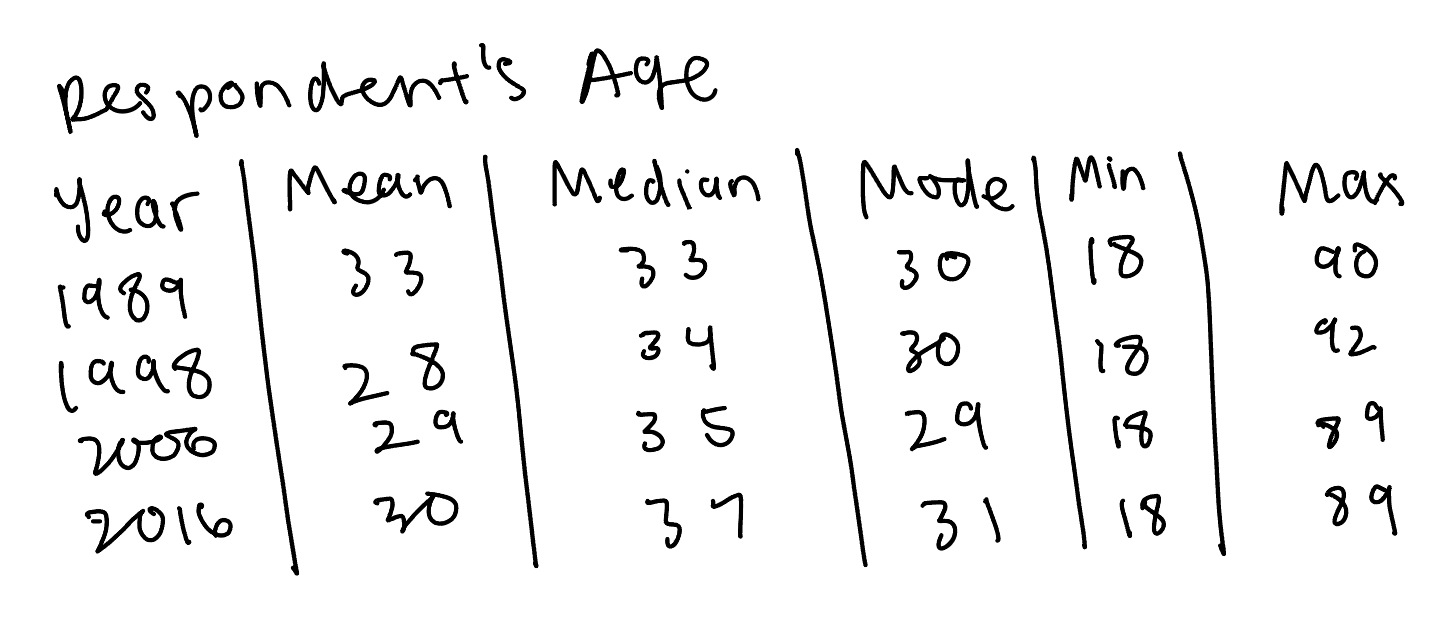 Respondent's Age
Year Mean Median Mode Min Max
1989 33 33 30 18 90
1998 28 34 30 18 92
2000 29 35 29 18 89
2016 30 37 31 18 89